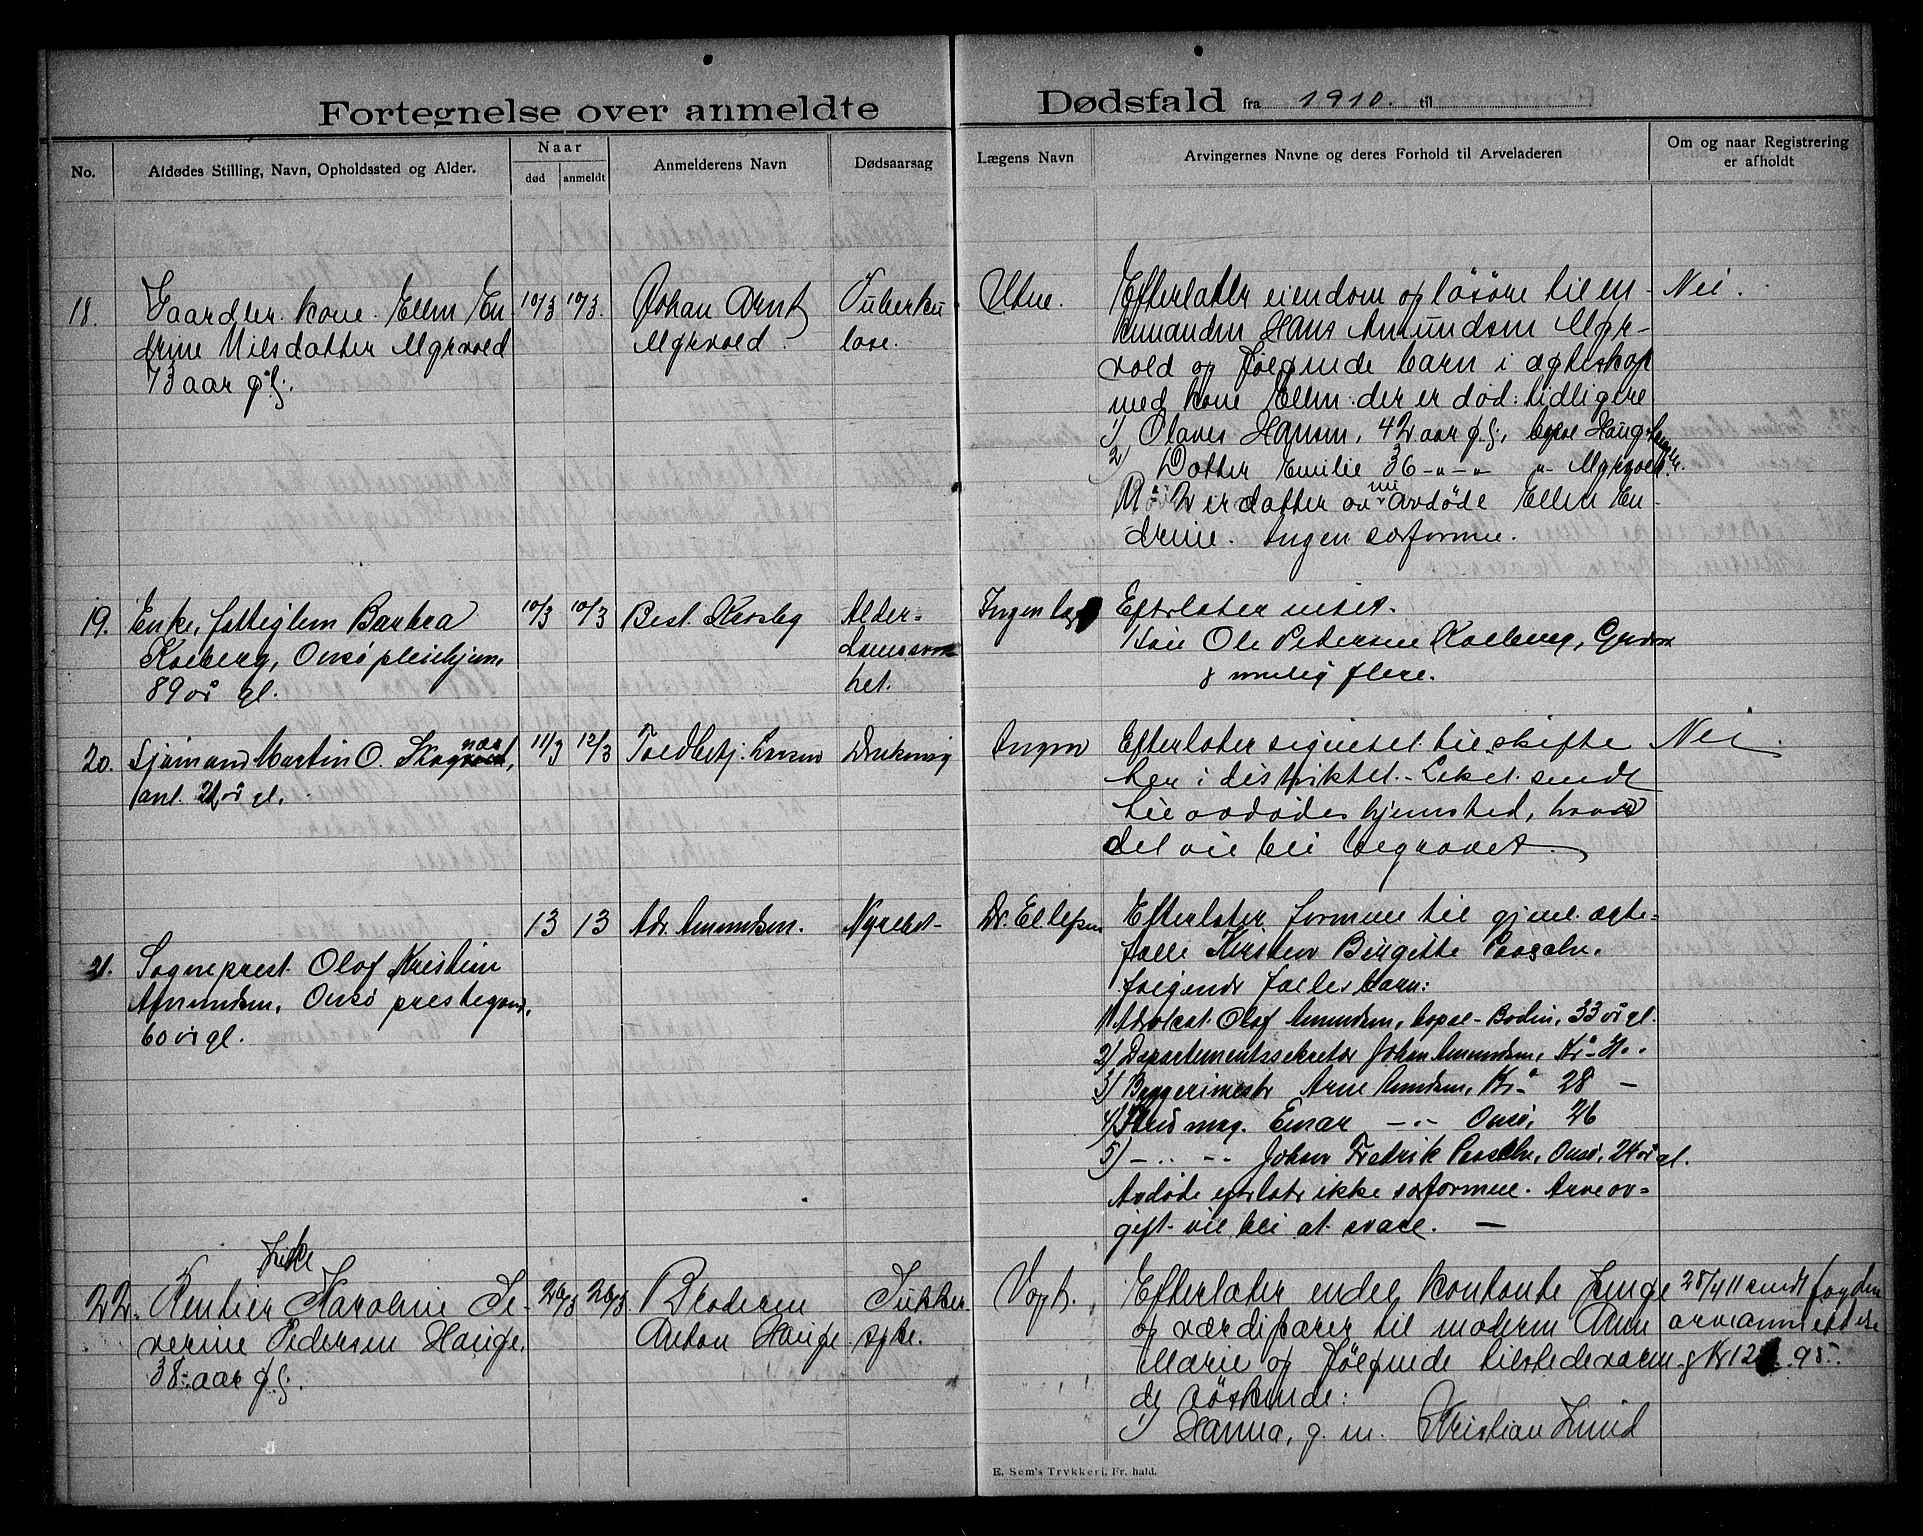 Fortegnelse over anmeldte Dødsfald fra 1910. til
No.
Afdødes Stilling, Navn, Opholdssted og Alder.
Naar
død anmeldt
Anmelderens Navn
Dødsaarsag
Lægens Navn
Arvingernes Navne og deres Forhold til Arveladeren
Om og naar Registrering
er afholdt
18.
Gaardbr. kone Ellen En
drine Nilsdatter Mørvold
73 aar gl:.
10/3 10/3.
Johan Arnt
Mørvold.
Tuberku
lose.
Utne.
Efterlater eiendom og løsøre til en-
kemanden Hans Amundsen Mør-
vold og følgende barn i ægteskap
med kone Ellen: der er død: tidligere
1) Olaves Hansen, 42 aar gl:, bopæl Haug
2) Datter Emilie 36 -"-"- " Mørvold.
No 2 er datter av nu avdøde Ellen En-
drine. Ingen særformue.
Nei.
19.
Enke, fattiglem Barbra
Kolberg, Onsø pleiehjem,
89 år gl.
10/3 10/3
Best. Krosby
Alder-
domssvak
het.
Ingen
Efterlater intet.
Ole Pedersen Kolberg,
& mulig flere.
20.
Sjømand Martin O. Skognæs,
ant. 21 år gl.
11/3 12/3
Toldbetj. Larsen
Drukning
Ingen
Efterlater sigvidt til skifte
her i distriktet. Liket sendt
til avdødes hjemsted, hvor
det vil bli begravet.
Nei.
21.
Sogneprest Olaf Kristian
Amundsen, Onsø prestegaard,
60 år gl.
13 13
Adv. Amundsen.
Nyrebet-
Dr. Ellefsen
Efterlater formue til gjenl. ægte-
fælle Kirsten Birgitte Paasche.
følgende fælles barn:
1) Advokat Olaf Amundsen, bopæl - Bodin, 33 år gl.
2) Departementssekretær Johan Amundsen, Kr.a -
3) Byggerimestr Arne Amundsen, Kr.a 28 -
4) Stud mag. Einar -"- Onsø, 26
5) - " - " Johan Fredrik Paasche, Onsø, 24 år gl.
Avdøde efterlater ikke særformue. Arveav-
gift vil bli at svare. -
22.
Rentier Karoline Se-
verine Pedersen Hauge.
38 aar gl:.
26/3 26/3
Broderen
Anton Hauge
Sukker
syke.
Vogt.
Efterlater endel kontante penge
og værdipapirer til moderen Anne
Marie og følgende tilstedeværen
de søskende:
1) Hanna, g. m. Kristian Lund
28/4 11 sendt fogden
arveanmeldelse
E. Sem's Trykkeri, Fr. hald.